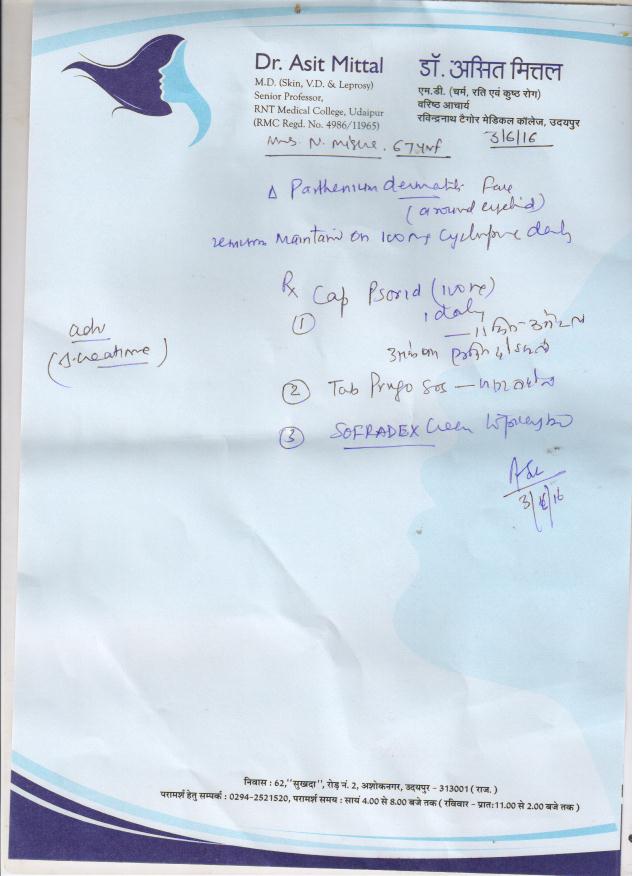 Dr. Asit Mittal
M.D. (Skin, V.D. & Leprosy)
Senior Professor,
RNT Medical College, Udaipur
(RMC Regd. No. 4986/11965)
डॉ. असित मित्तल
एम.डी. (चर्म, रति एवं कुष्ठ रोग)
वरिष्ठ आचार्य
रविन्द्रनाथ टैगोर मेडिकल कॉलेज, उदयपुर
3/6/16
Mrs. N. 67 yr/f
Δ Parthenium dermatitis Face
(around eyelid)
Maintain on 100 mg daily
Rx Cap Psorid (100mg)
① 1 daily
adv
(S. creatinine)
② Tab SOS
③ SOFRADEX Cream
3/6/16
निवास : 62,"सुखदा", रोड़ नं. 2, अशोकनगर, उदयपुर - 313001 ( राज. )
परामर्श हेतु सम्पर्क : 0294-2521520, परामर्श समय : सायं 4.00 से 8.00 बजे तक ( रविवार - प्रात: 11.00 से 2.00 बजे तक )